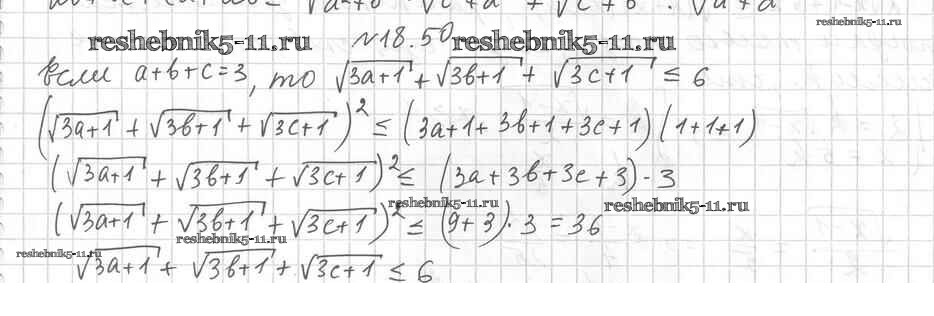 reshebnik5-11.ru
reshebnik5-11.ru №18.50 reshebnik5-11.ru
Если a+b+c=3, то √3a+1 + √3b+1 + √3c+1 ≤ 6
(√3a+1 + √3b+1 + √3c+1)² ≤ (3a+1+3b+1+3c+1)(1+1+1)
(√3a+1 + √3b+1 + √3c+1)² ≤ (3a+3b+3c+3)·3
reshebnik5-11.ru reshebnik5-11.ru
(√3a+1 + √3b+1 + √3c+1)² ≤ (9+3)·3 = 36
reshebnik5-11.ru
reshebnik5-11.ru
√3a+1 + √3b+1 + √3c+1 ≤ 6